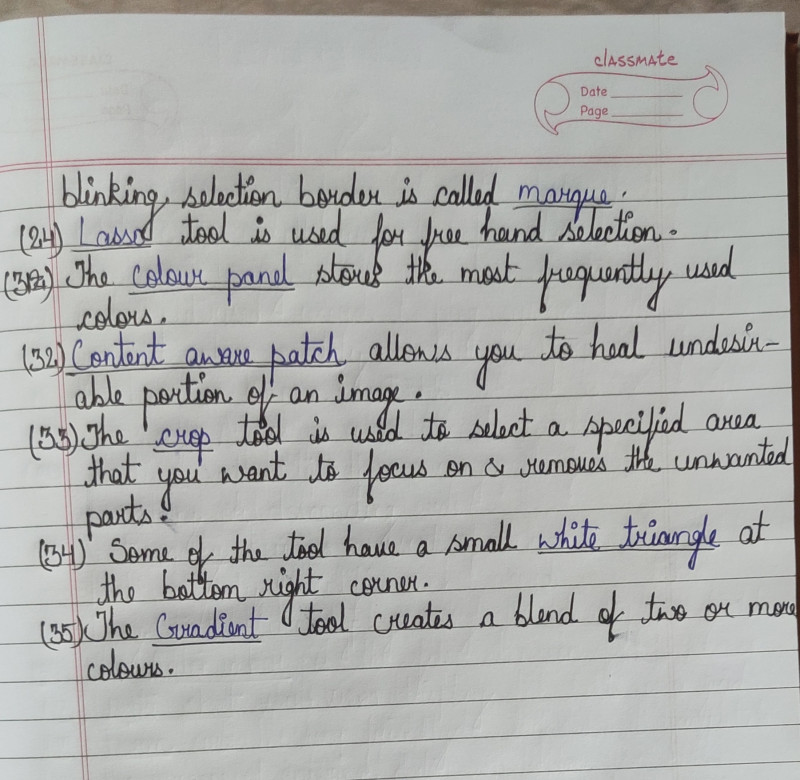 classmate
Date
Page
blinking selection border is called marque.
(24) Lasso tool is used for free hand selection.
The Colour panel stores the most frequently used
colors.
(32) Content aware patch allows you to heal undesir-
able portion of an image.
(33) The crop tool is used to select a specified area
that you want to focus on & removes the unwanted
parts.
(34) Some of the tool have a small white triangle at
the bottom right corner.
(35) The Gradient tool creates a blend of two or more
colours.